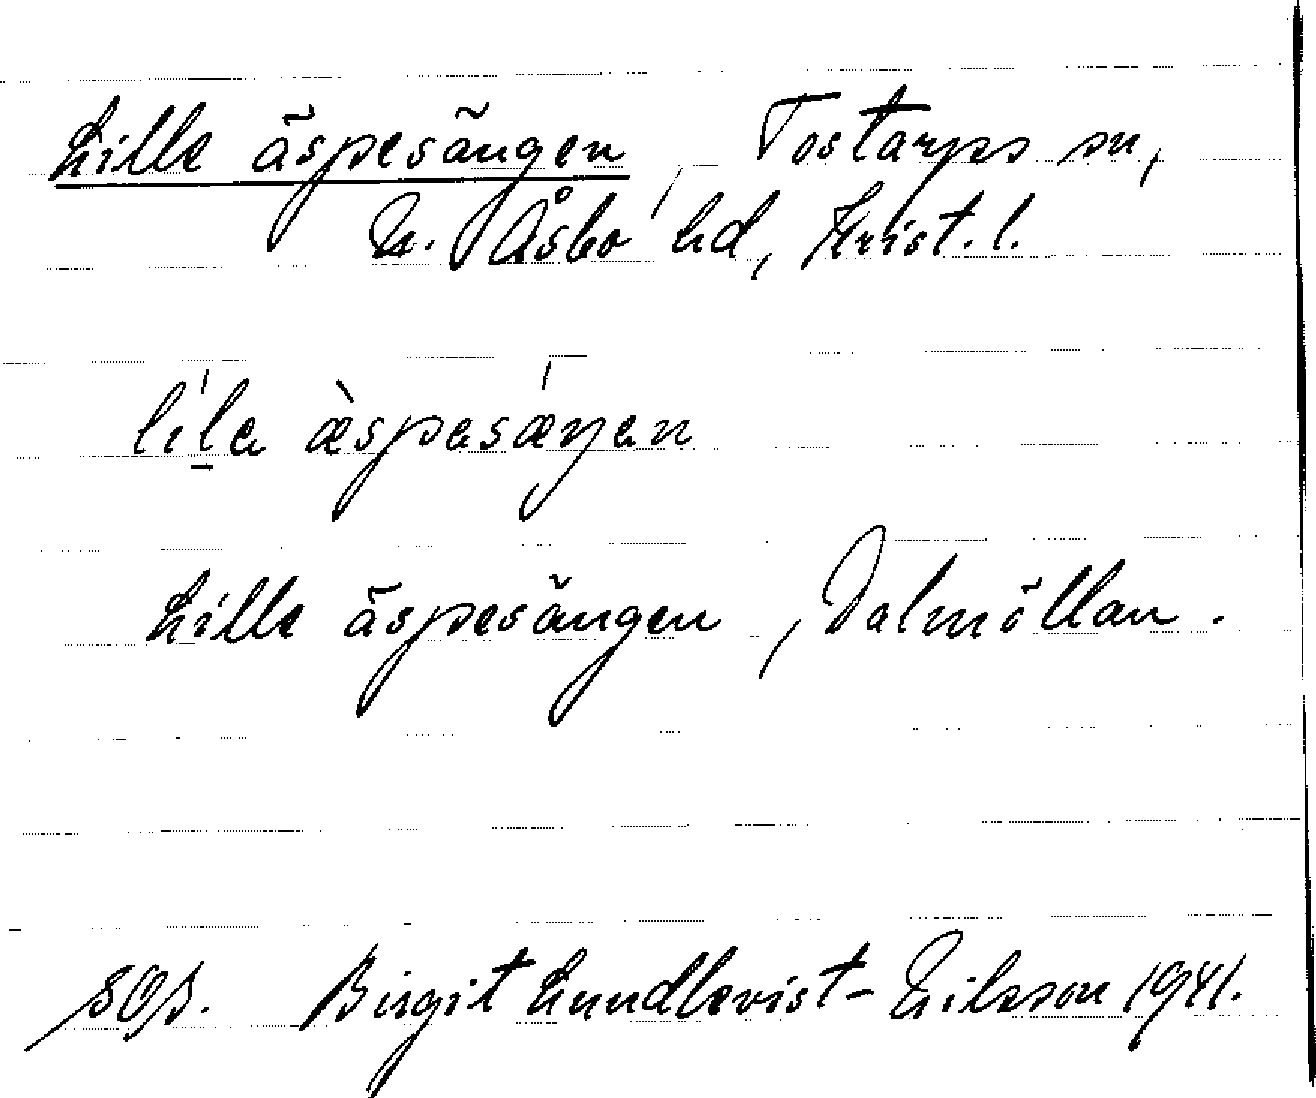 Lille äspesängen, Tostarps sn,
N. Åsbo hd, Krist. l.
lila æ̀spesæŋen
Lille äspesängen, Dalmöllan.
Birgit Lundkvist-Nilsson 1941.